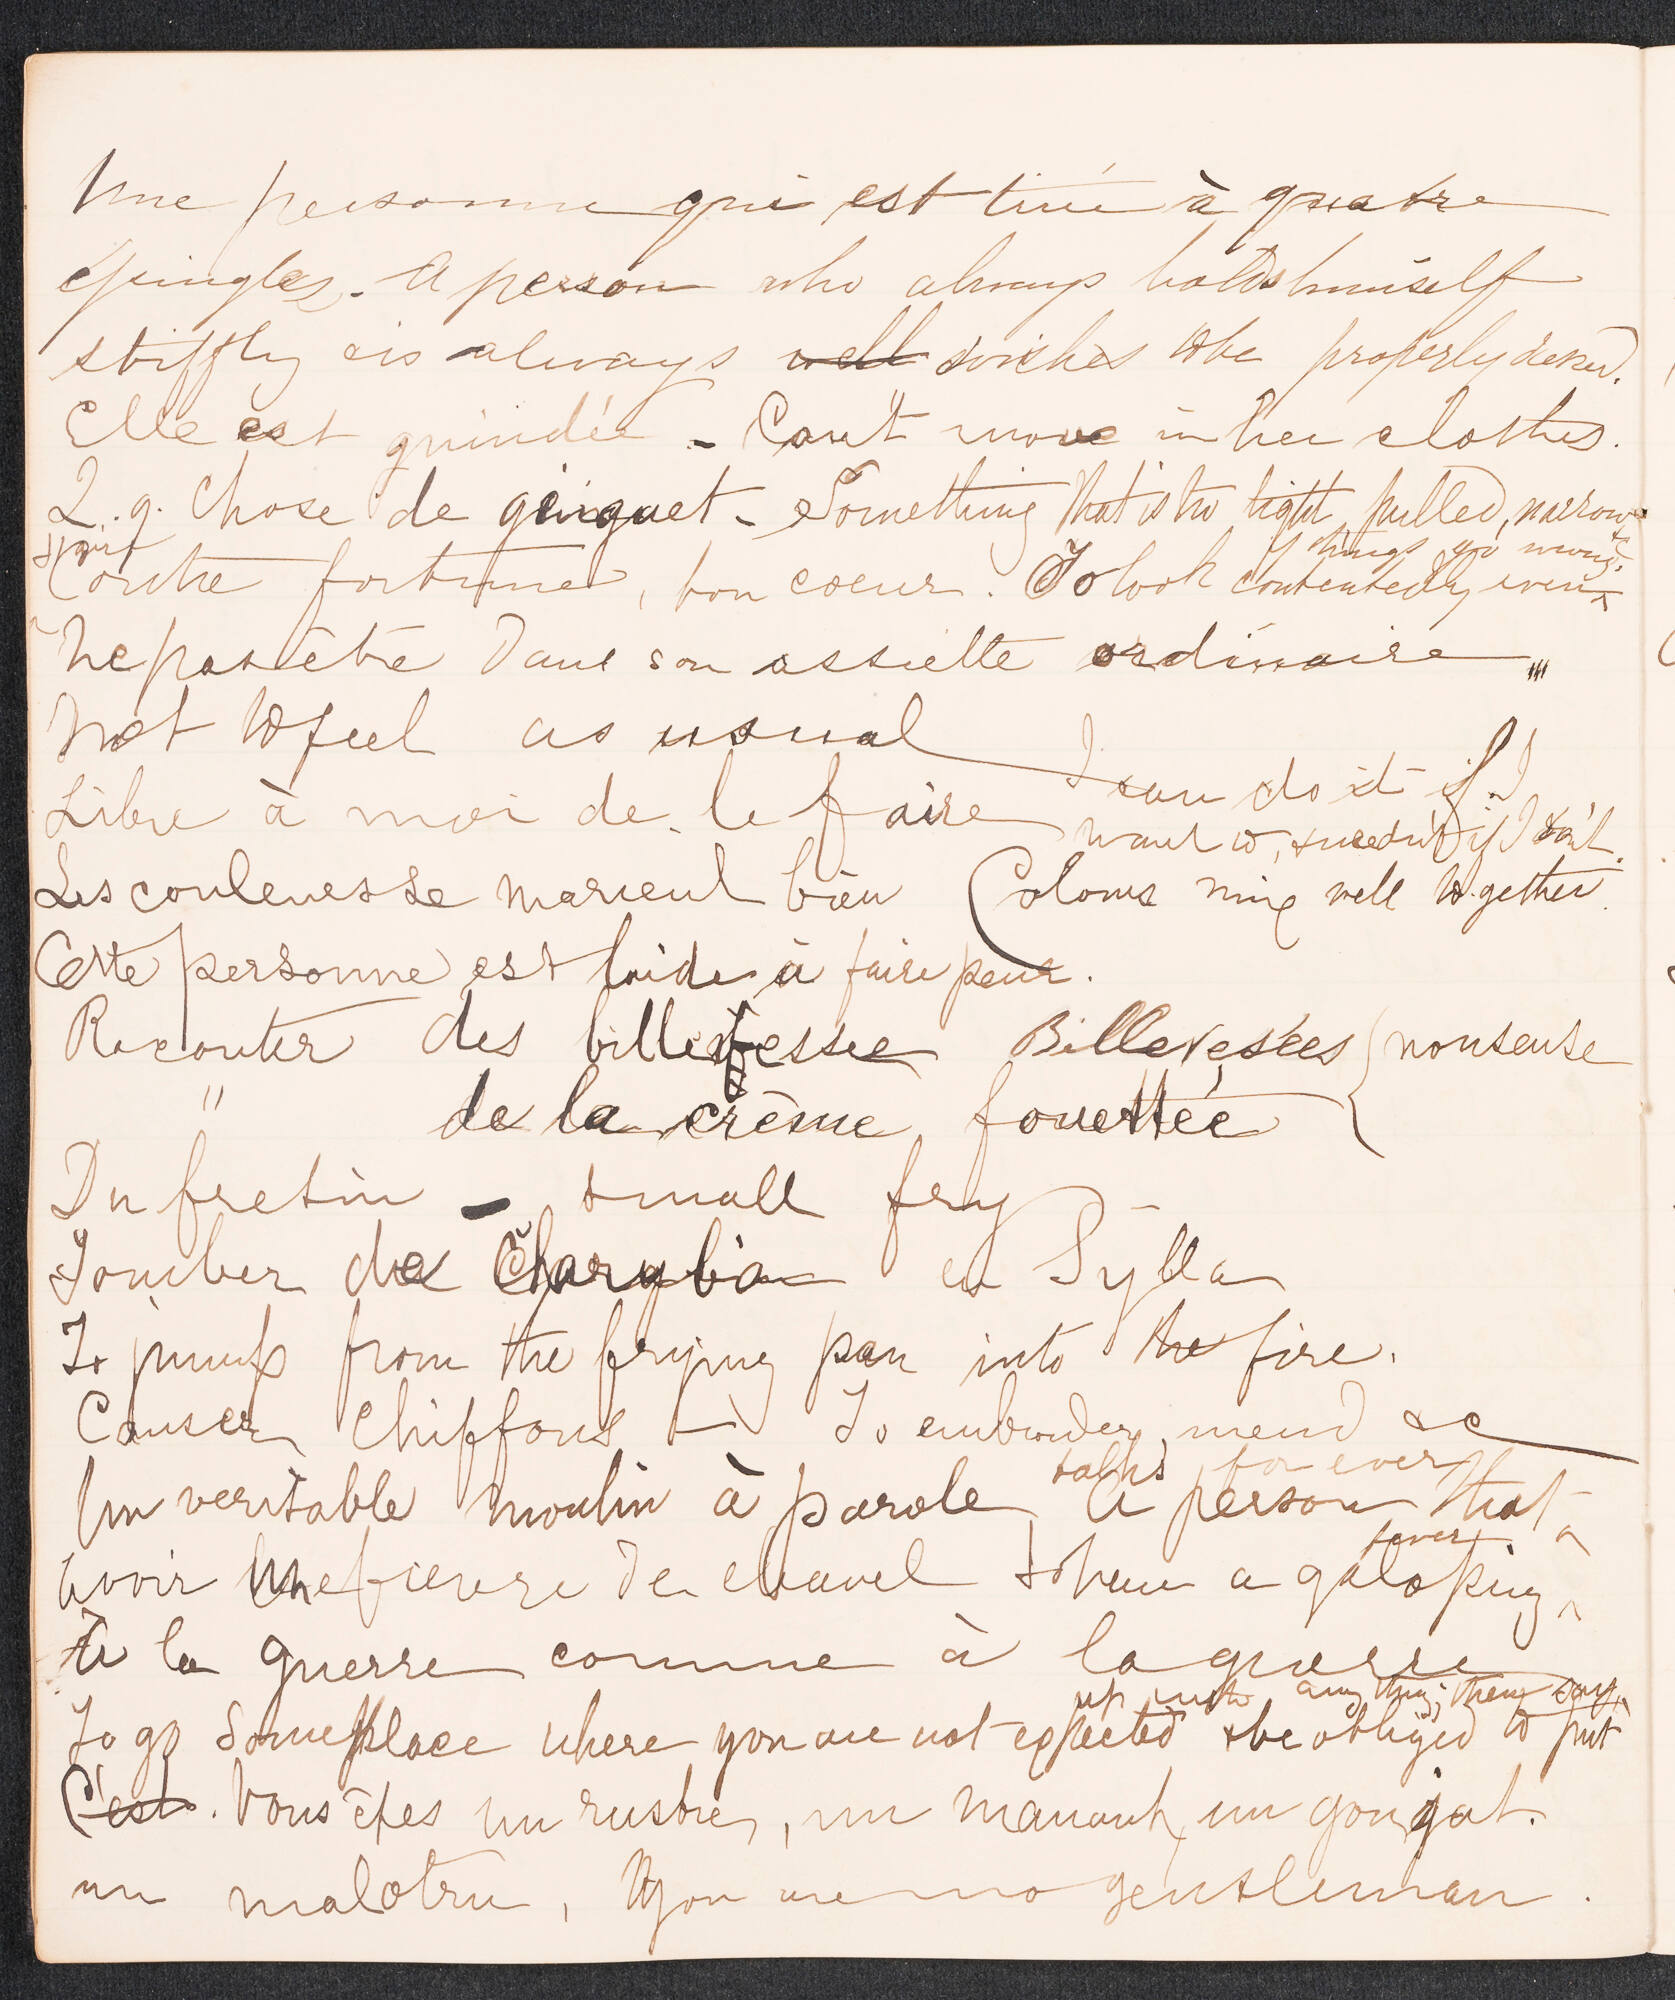 Une personne qui est tirée à quatre
épingles. A person who always holds himself
stiffly ois always well wishes to be properly
Elle est guindée - Can't move in her clothes.
Q. q. chose de ginguet - Something that is too tight, pulled, narrow
Contre fortune, bon coeur. To look contentedly even
if things go wrong.
Ne pas être dans son assiette ordinaire
Not to feel as usual
Libre à moi de le faire I can do it if I
want to, & needn't if I don't.
Les couleurs se marient bien Colours mix well together.
Cette personne est laide à faire peur.
Raconter des Billevesées } nonsense
" de la crême fouettée
Du fretin - small fry
Tomber de Charybia en Sylla
To jump from the frying pan into the fire.
Causer Chiffons - To embroider, mend &c
Un veritable moulin à parole A person that
talks for ever
Avoir Une fievere de cheavel to have a galoping
fever
A la guerre comme à la guerre
To go Someplace where you are not expected & be obliged to put
up with any thing, they say.
C'est. Vous êtes un rustre, un manant, un goujat.
un malotru, You are no gentleman.